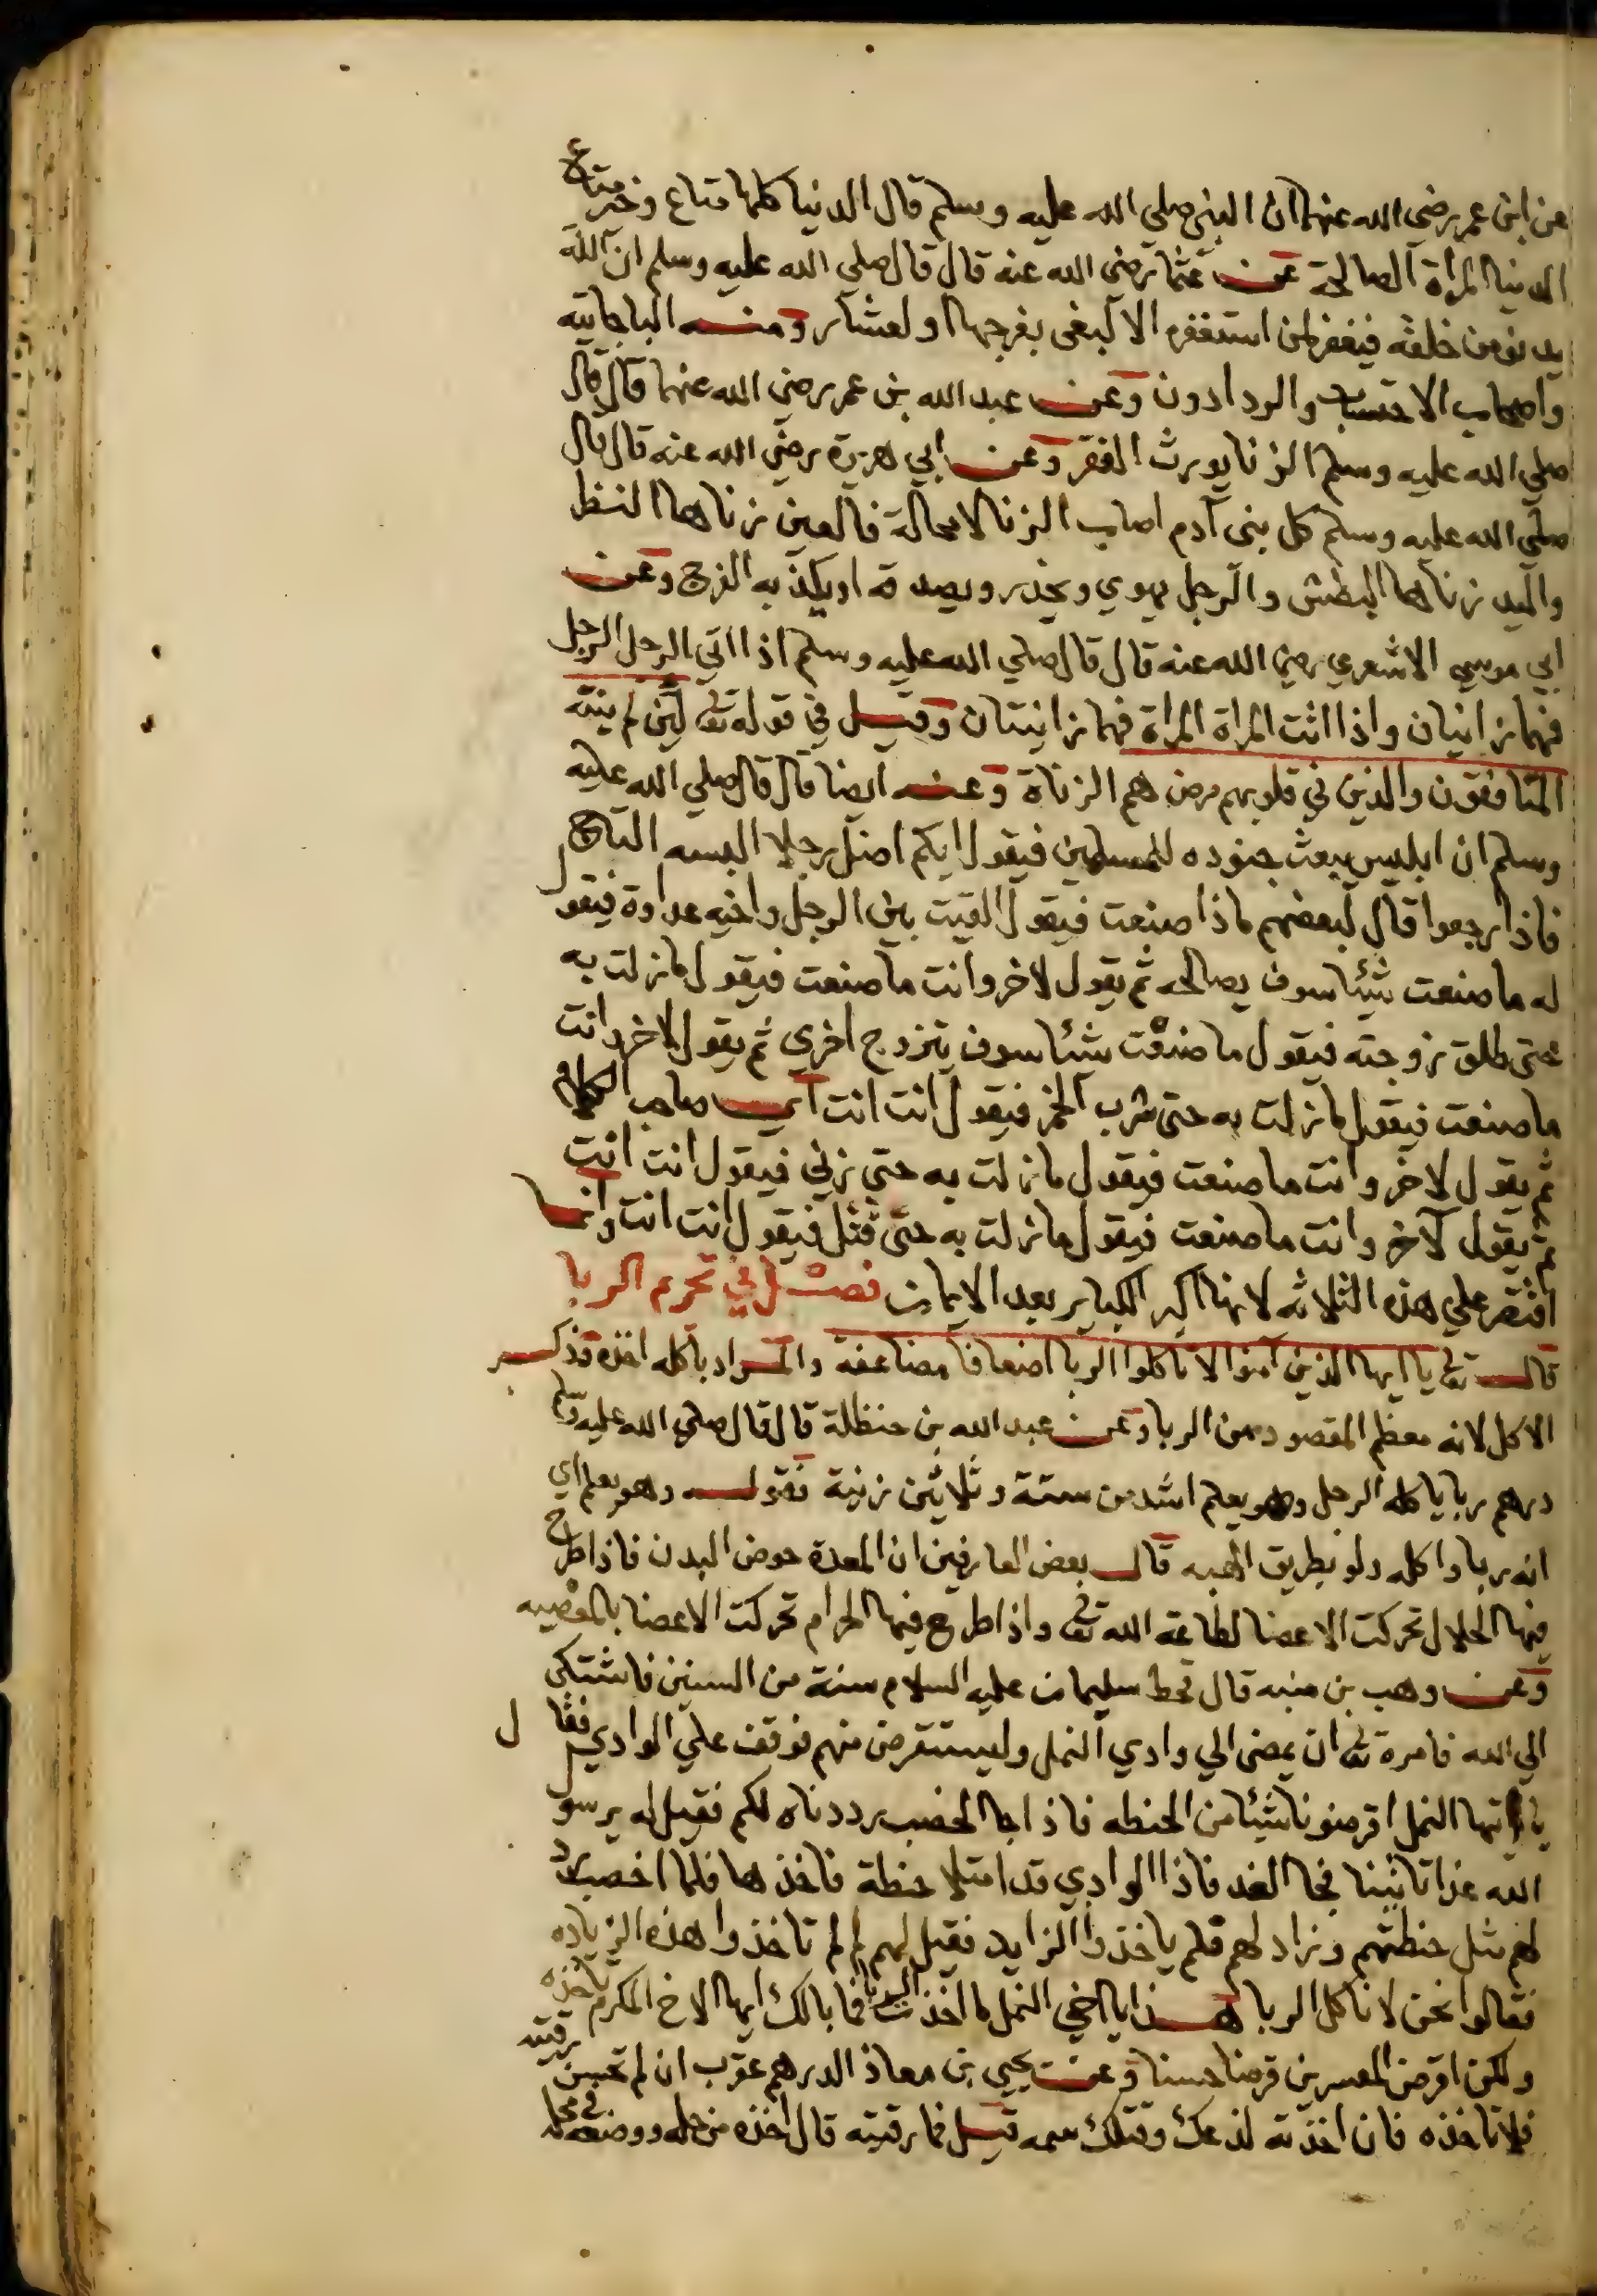 عن ابن عمر رضي الله عنهما ان النبي صلي الله عليه وسلم قال الدنيا كلها متاع وخير متاع
الدنيا المرأة الصالحة عن عثمان رضي الله عنه قال قال صلي الله عليه وسلم ان الله
يدنو من خلقه فيغفر لمن استغفره الا لبغي بفرجها او لعشار ومنه الباجاتيه
واصحاب الاحتساب والردادون وعن عبد الله بن عمر رضي الله عنهما قال قال
صلي الله عليه وسلم الزنا يورث الفقر وعن ابي هريرة رضي الله عنه قال قال
صلي الله عليه وسلم كل بني آدم اصاب الزنا لا محالة فالعين زناها النظر
واليد زناها البطش والرجل يهوي ويحذر ويصدقه او يكذبه الفرج وعن
ابي موسي الاشعري رضي الله عنه قال قال صلي الله عليه وسلم اذا اتي الرجل الرجل
فهما زانيان واذا اتت المراة المراة فهما زانيتان وقيل في قوله تع لئن لم ينته
المنافقون والذين في قلوبهم مرض هم الزناة وعنه ايضا قال قال صلي الله عليه
وسلم ان ابليس يبعث جنوده للمسلمين فيقول ايكم اضل رجلا البسه التاج
فاذا رجعوا قال لبعضهم ماذا صنعت فيقول القيت بين الرجل واخيه عداوة فيقول
له ما صنعت شيئا سوف يصالحه ثم يقول لاخر وانت ما صنعت فيقول ما زلت به
حتى طلق زوجته فيقول ما صنعت شيئا سوف يتزوج اخري ثم يقول لاخر وانت
ما صنعت فيقول ما زلت به حتى شرب الخمر فيقول انت انت اي صاحب الكلام
ثم يقول لاخر وانت ما صنعت فيقول ما زلت به حتى زني فيقول انت انت
ثم يقول لاخر وانت ما صنعت فيقول ما زلت به حتى قتل فيقول انت انت وانما
اقتصر علي هذه الثلاثه لانها اكبر الكباير بعد الايمان فصل في تحريم الربا
قال تع يا ايها الذين آمنوا لا تاكلوا الربا اضعافا مضاعفة والمراد باكله اخذه فذكر
الاكل لانه معظم المقصود من الربا وعن عبد الله بن حنظلة قال قال صلي الله عليه وسلم
درهم ربا ياكله الرجل وهو يعلم اشد من ستة وثلاثين زنية فقوله وهو يعلم اي
انه ربا واكله ولو بطريق الهبه قال بعض العارفين ان المعدة حوض البدن فاذا طرح
فيها الحلال تحركت الاعضا لطاعة الله تع واذا طرح فيها الحرام تحركت الاعضا بالمعصيه
وعن وهب بن منبه قال قحط سليمان عليه السلام سنة من السنين فاشتكي
الي الله فامره تع ان يمضي الي وادي النمل وليستقرض منهم فوقف علي الوادي فقال
يا ايتها النمل اقرضونا شيئا من الحنطه فاذا جا الخصب رددناه لكم فقيل له يرسول
الله غدا تاتينا فجا الغد فاذا الوادي قد امتلا حنطة فاخذها فلما اخصب رد
لهم مثل حنطتهم وزاد لهم فلم ياخذوا الزايد فقيل لهم لم لم تاخذوا هذه الزياده
فقالوا نحن لا ناكل الربا هذا يا اخي النمل ما اخذت الربا فما بالك ايها الاخ المكرم تاخذه
ولكن اقرض المعسرين قرضا حسنا وعن يحيي بن معاذ الدرهم عقرب ان لم تحسن رقيته
فلا تاخذه فان اخذته لذعك وقتلك سمه قيل فما رقيته قال اخذه من حله ووضعه في محله